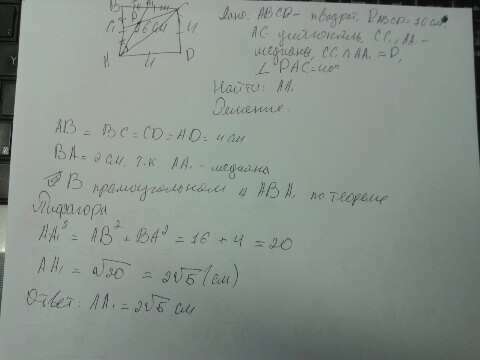 Дано: ABCD - квадрат, P ABCD = 16 см
AC
CC₁, AA₁ -
медианы, CC₁ ∩ AA₁ = O,
Найти: AA₁
Решение.
AB = BC = CD = AD = 4 см
BA₁ = 2 см, т.к AA₁ - медиана
В прямоугольном ABA₁ по теореме
Пифагора
AA₁² = AB² + BA² = 16 + 4 = 20
AA₁ = √20 = 2√5 (см)
Ответ: AA₁ = 2√5 см